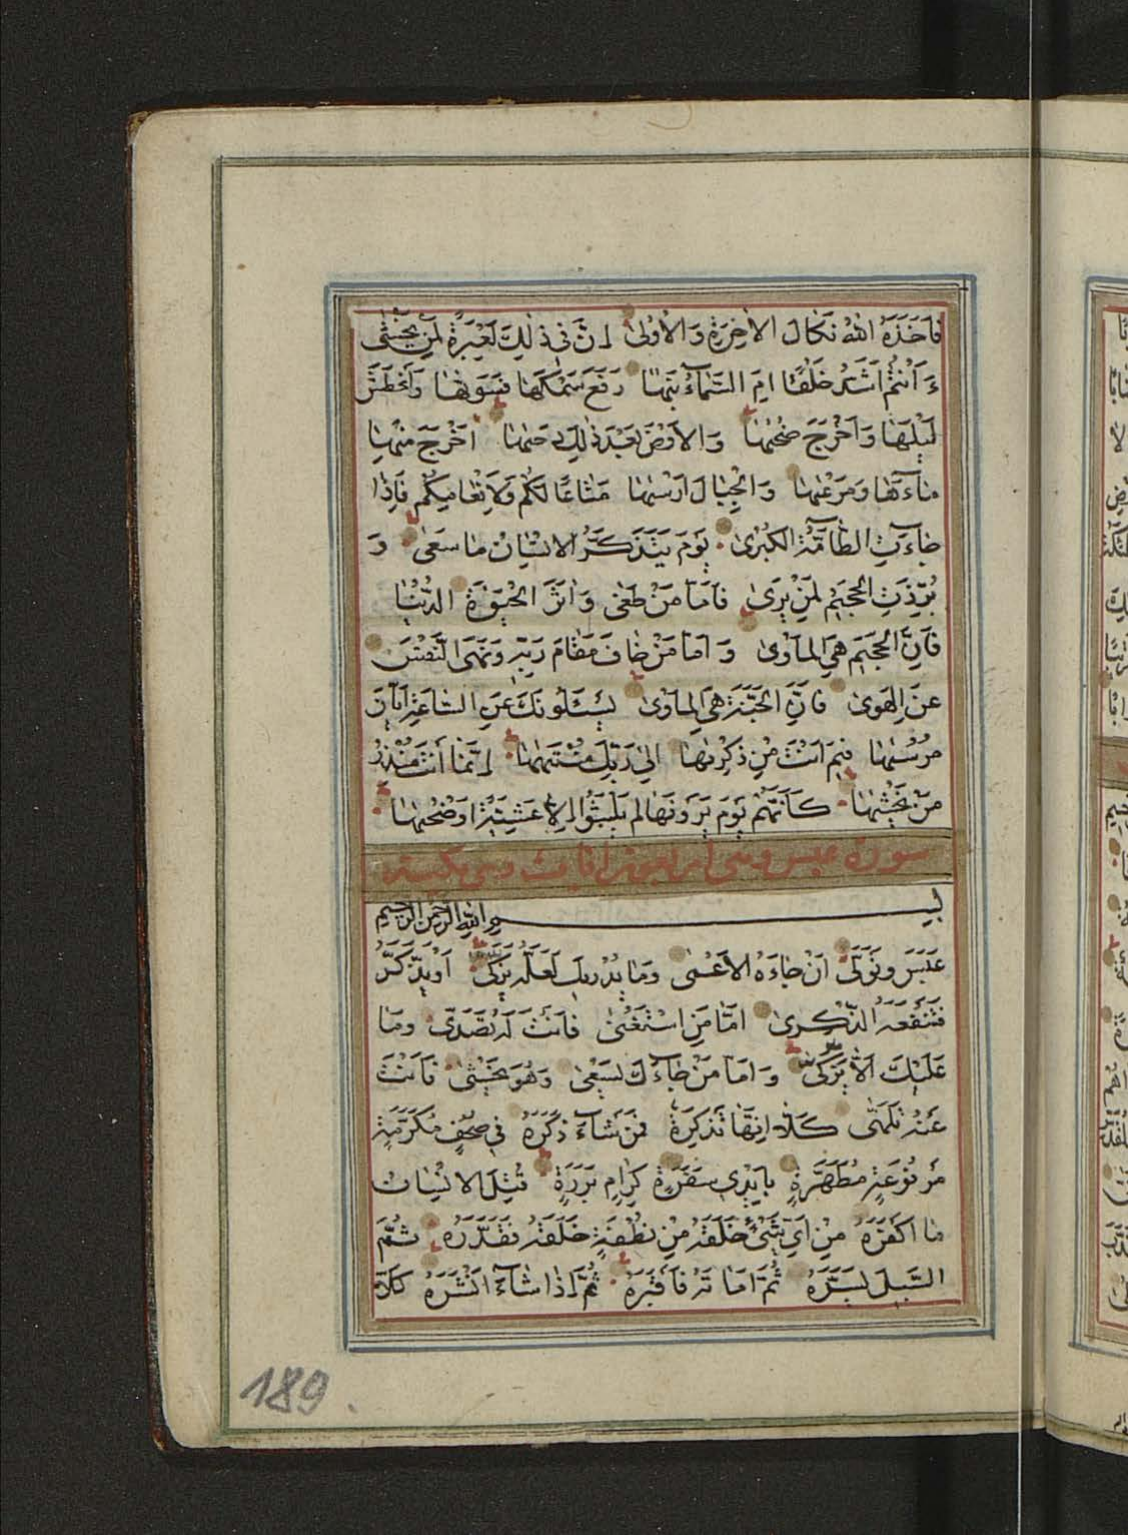 فَاَخَذَهُ اللّٰهُ نَكَالَ الْاٰخِرَةِ وَالْاُوْلٰى اِنَّ فِى ذٰلِكَ لَعِبْرَةً لِمَنْ يَخْشٰى
ءَاَنْتُمْ اَشَدُّ خَلْقًا اَمِ السَّمَآءُ بَنٰيهَا رَفَعَ سَمْكَهَا فَسَوّٰيهَا وَاَغْطَشَ
لَيْلَهَا وَاَخْرَجَ ضُحٰيهَا وَالْاَرْضَ بَعْدَ ذٰلِكَ دَحٰيهَا اَخْرَجَ مِنْهَا
مَآءَهَا وَمَرْعٰيهَا وَالْجِبَالَ اَرْسٰيهَا مَتَاعًا لَكُمْ وَلِاَنْعَامِكُمْ فَاِذَا
جَآءَتِ الطَّآمَّةُ الْكُبْرٰى يَوْمَ يَتَذَكَّرُ الْاِنْسَانُ مَا سَعٰى وَ
بُرِّزَتِ الْجَحِيْمُ لِمَنْ يَرٰى فَاَمَّا مَنْ طَغٰى وَاٰثَرَ الْحَيٰوةَ الدُّنْيَا
فَاِنَّ الْجَحِيْمَ هِىَ الْمَاْوٰى وَاَمَّا مَنْ خَافَ مَقَامَ رَبِّهِ وَنَهَى النَّفْسَ
عَنِ الْهَوٰى فَاِنَّ الْجَنَّةَ هِىَ الْمَاْوٰى يَسْئَلُوْنَكَ عَنِ السَّاعَةِ اَيَّانَ
مُرْسٰيهَا فِيْمَ اَنْتَ مِنْ ذِكْرٰيهَا اِلٰى رَبِّكَ مُنْتَهٰيهَا اِنَّمَا اَنْتَ مُنْذِرُ
مَنْ يَخْشٰيهَا كَاَنَّهُمْ يَوْمَ يَرَوْنَهَا لَمْ يَلْبَثُوْا اِلَّا عَشِيَّةً اَوْ ضُحٰيهَا
سورة عبس وهى اربعين آيات وهى مكية
بِسْمِ اللّٰهِ الرَّحْمٰنِ الرَّحِيْمِ
عَبَسَ وَتَوَلّٰى اَنْ جَآءَهُ الْاَعْمٰى وَمَا يُدْرِيكَ لَعَلَّهُ يَزَّكّٰى اَوْ يَذَّكَّرُ
فَتَنْفَعَهُ الذِّكْرٰى اَمَّا مَنِ اسْتَغْنٰى فَاَنْتَ لَهُ تَصَدّٰى وَمَا
عَلَيْكَ اَلَّا يَزَّكّٰى وَاَمَّا مَنْ جَآءَكَ يَسْعٰى وَهُوَ يَخْشٰى فَاَنْتَ
عَنْهُ تَلَهّٰى كَلَّا اِنَّهَا تَذْكِرَةٌ فَمَنْ شَآءَ ذَكَرَهُ فِى صُحُفٍ مُكَرَّمَةٍ
مَرْفُوْعَةٍ مُطَهَّرَةٍ بِاَيْدِى سَفَرَةٍ كِرَامٍ بَرَرَةٍ قُتِلَ الْاِنْسَانُ
مَا اَكْفَرَهُ مِنْ اَىِّ شَىْءٍ خَلَقَهُ مِنْ نُطْفَةٍ خَلَقَهُ فَقَدَّرَهُ ثُمَّ
السَّبِيلَ يَسَّرَهُ ثُمَّ اَمَاتَهُ فَاَقْبَرَهُ ثُمَّ اِذَا شَآءَ اَنْشَرَهُ كَلَّا
189.